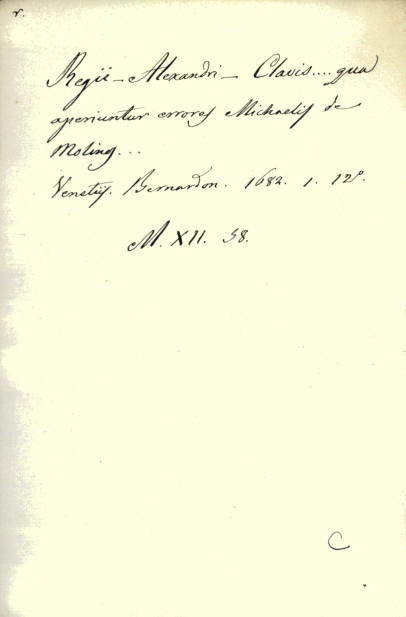 r.
Regii – Alexandri – Clavis.... qua
aperiuntur errores Michaelis de
Molinos...
Venetijs. Bernardon. 1682. 1. 12º.
M. XII. 58.
C